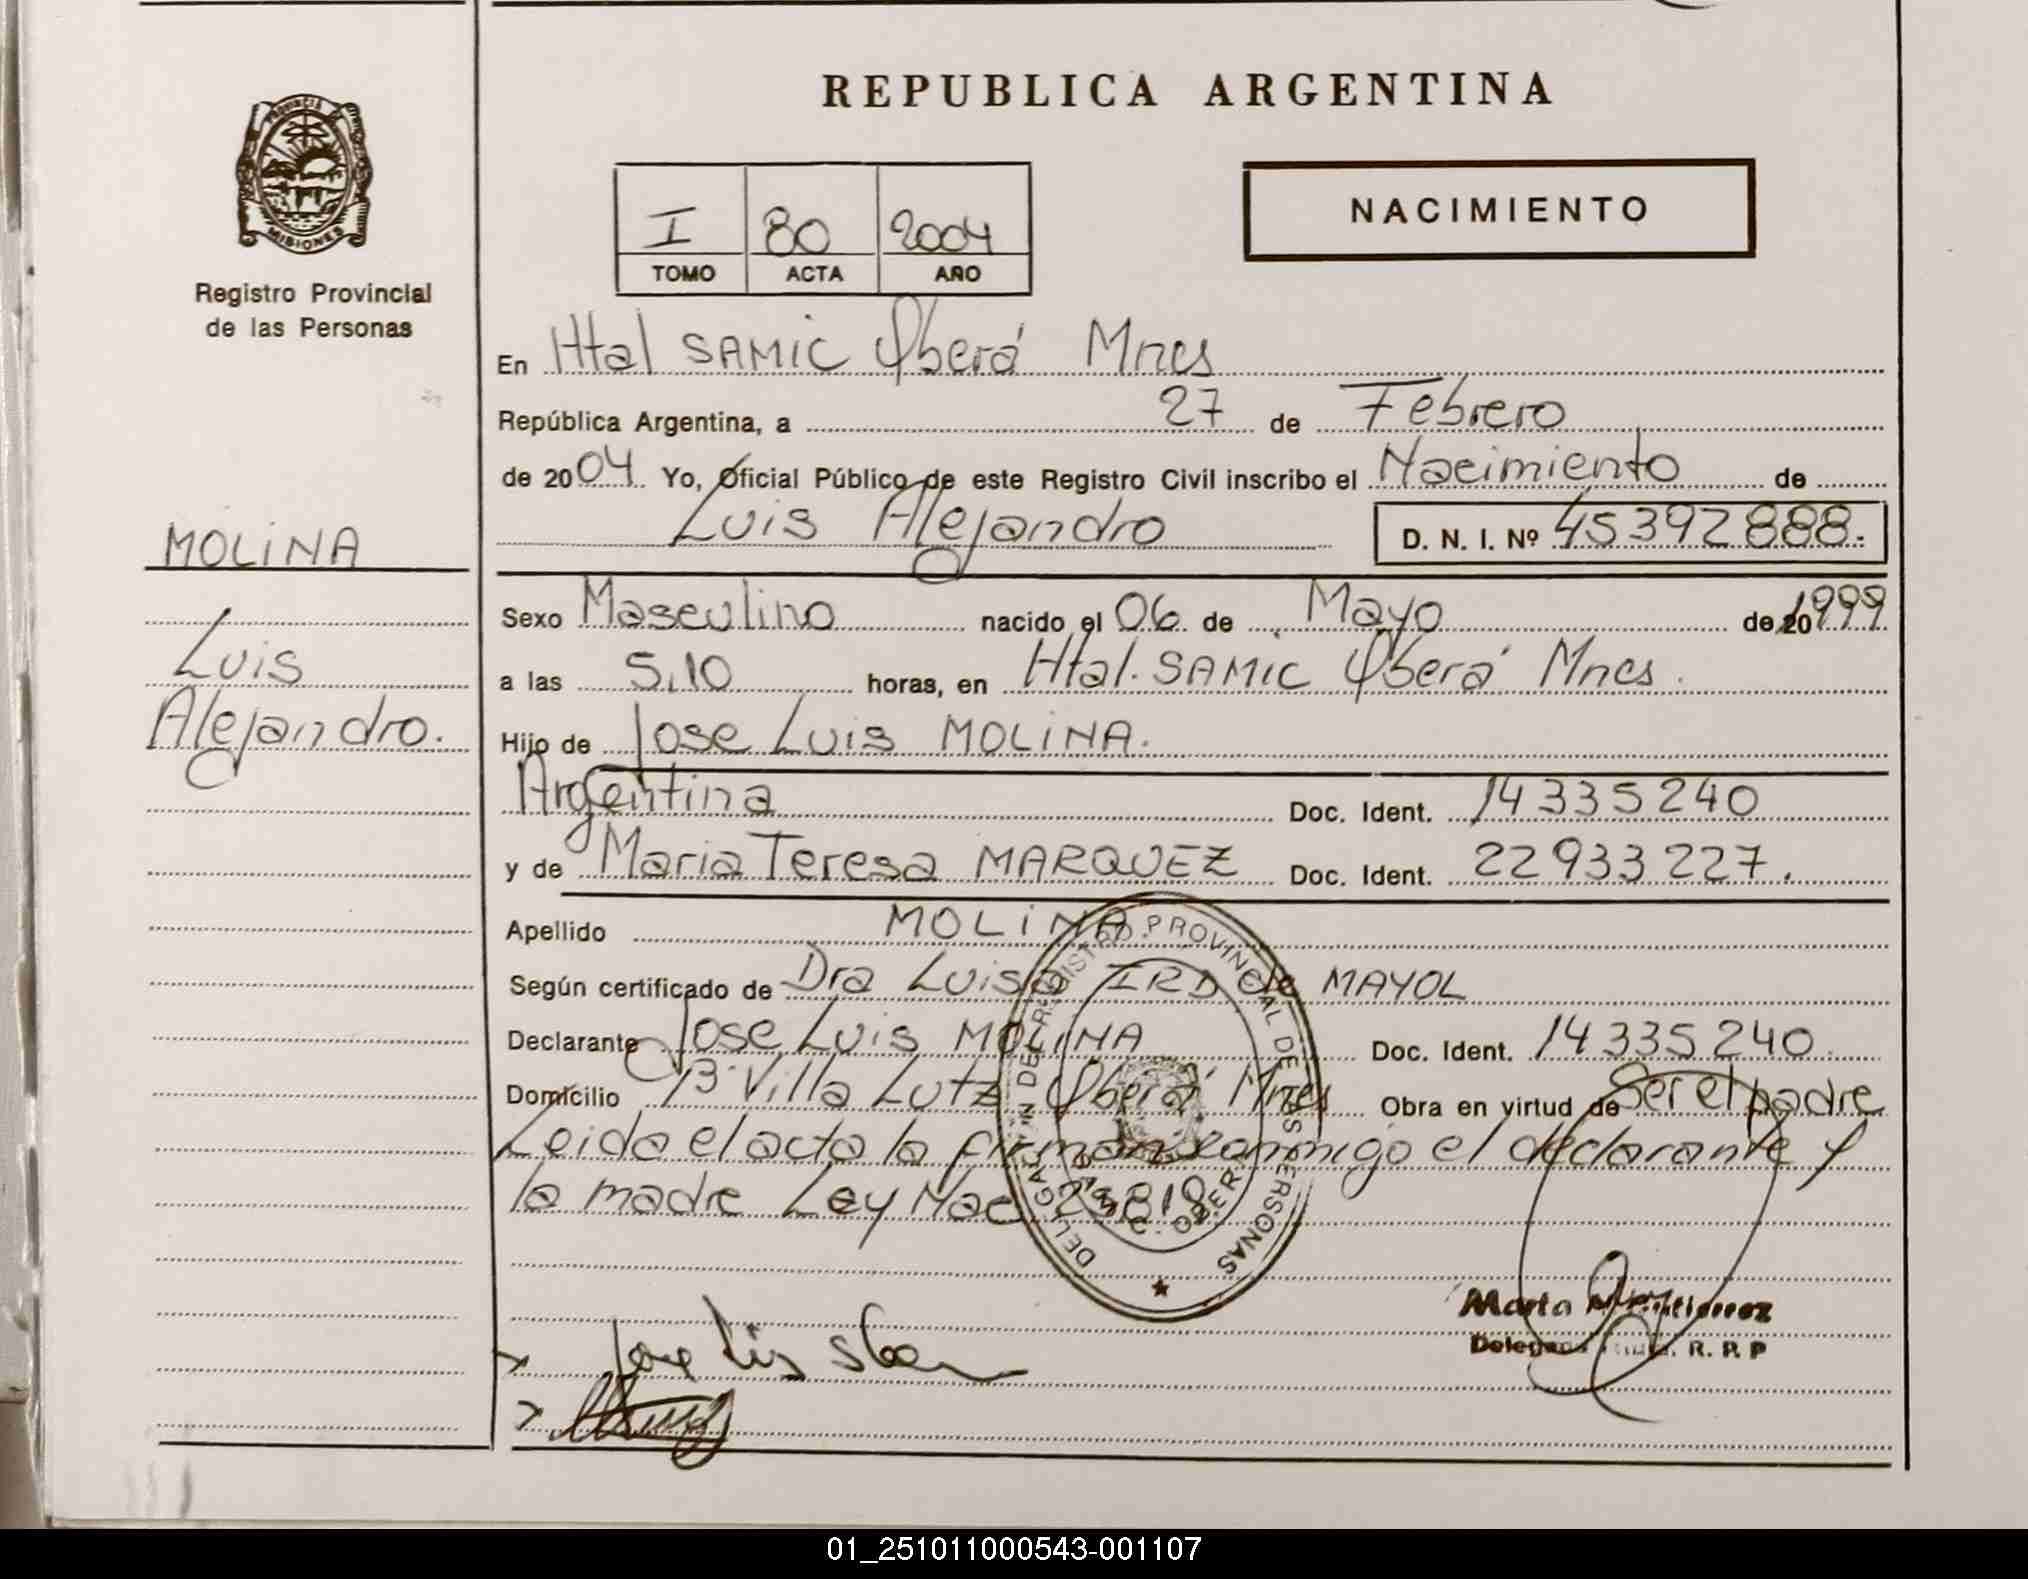 REPUBLICA ARGENTINA
PROVINCIA
MISIONES
Registro Provincial
de las Personas
I 80 2004
TOMO ACTA AÑO
NACIMIENTO
En Htal SAMIC Oberá Mnes
República Argentina, a 27 de Febrero
de 2004 Yo, Oficial Público de este Registro Civil inscribo el Nacimiento de
Luis Alejandro D. N. I. Nº 45392888.
MOLINA
Luis
Alejandro.
Sexo Masculino nacido el 06 de Mayo de 20 1999
a las 5,10 horas, en Htal. SAMIC Oberá Mnes.
Hijo de Jose Luis MOLINA.
Argentina Doc. Ident. 14335240
y de Maria Teresa MARQUEZ Doc. Ident. 22933227.
Apellido MOLINA
Según certificado de Dra Luisa IRD de MAYOL
Declarante Jose Luis MOLINA Doc. Ident. 14335240
Domicilio Bº Villa Lutz Oberá Mnes Obra en virtud de Ser el padre
Leida el acta la firman conmigo el declarante y
la madre Ley Nac 23818
DEL REGISTRO PROVINCIAL DE LAS PERSONAS
OBERA
Marta
R. P. P
Jose Luis
01_251011000543-001107